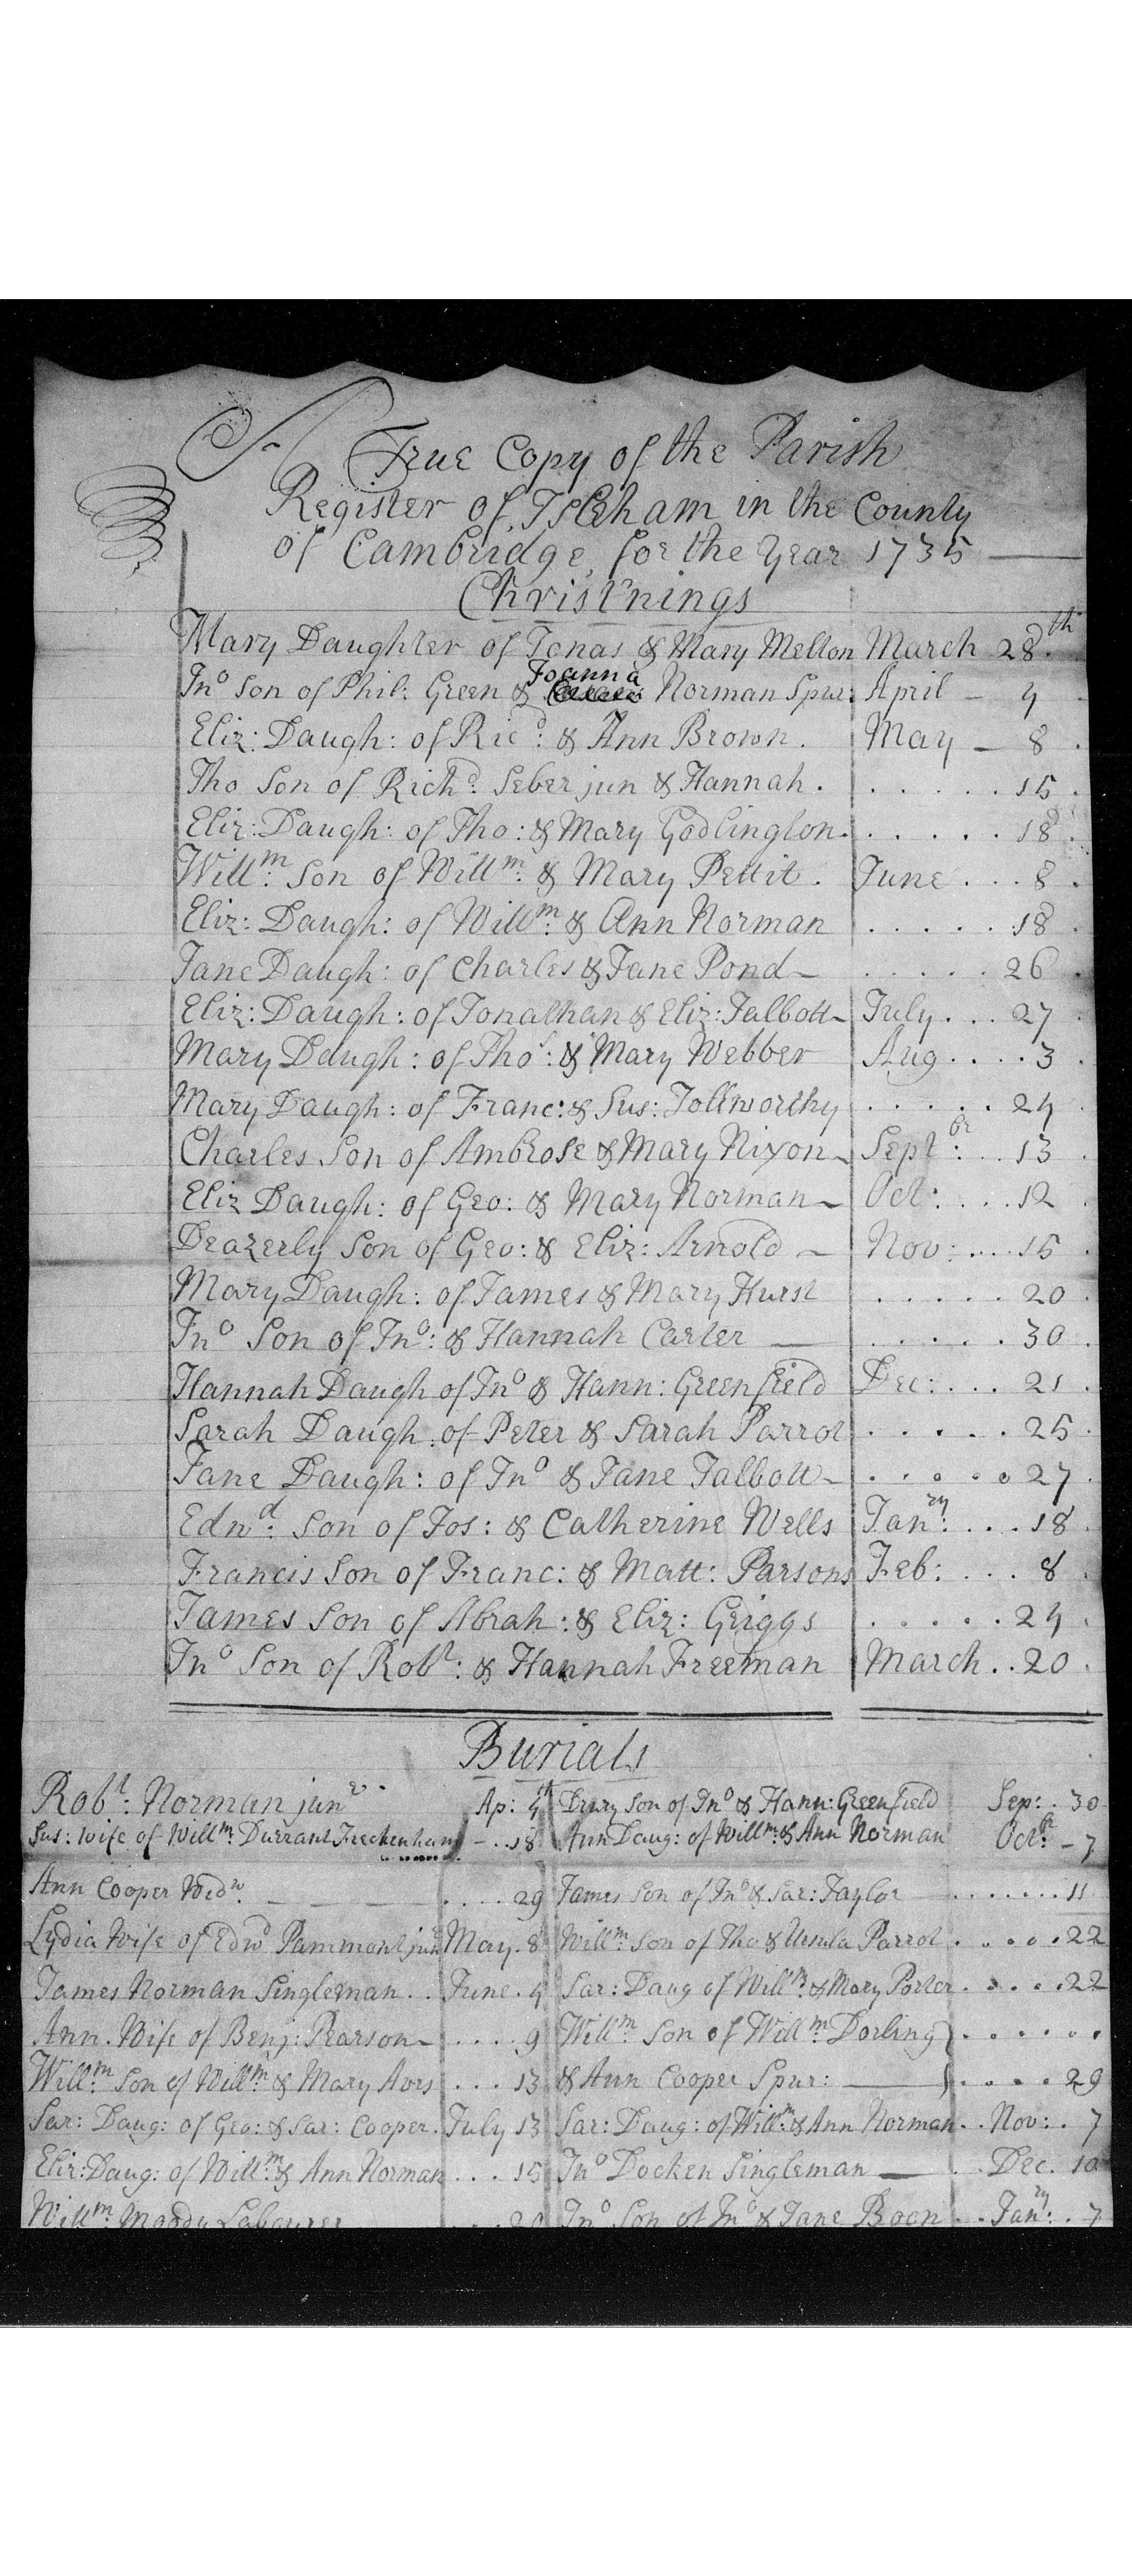 A True Copy of the Parish
Register of Isleham in the County
of Cambridge, for the Year 1735
Christ'nings
Mary Daughter of Jonas & Mary Melton March 28th
Jno Son of Phil: Green & Joanna Norman Spur: April - 4
Eliz: Daugh: of Ricd: & Ann Brown. May - 8
Tho Son of Richd: Seber jun & Hannah. . . . . . 15
Eliz: Daugh: of Tho: & Mary Godlington. . . . . . 18
Willm: Son of Willm: & Mary Pettit. June . . . 8
Eliz: Daugh: of Willm: & Ann Norman . . . . . 18
Jane Daugh: of Charles & Jane Pond - . . . . . 26
Eliz: Daugh: of Jonathan & Eliz: Talbott - July . . . 27
Mary Daugh: of Tho: & Mary Webber Aug . . . . 3
Mary Daugh: of Franc: & Sus: Tollworthy . . . . . 24
Charles Son of Ambrose & Mary Nixon - Septbr: . . 13
Eliz Daugh: of Geo: & Mary Norman - Oct: . . . . 12
Deazerly Son of Geo: & Eliz: Arnold - Nov: . . . 15
Mary Daugh: of James & Mary Hurst . . . . . 20
Jno Son of Jno: & Hannah Carter . . . . . 30
Hannah Daugh of Jno & Hann: Greenfield Dec: . . . 21
Sarah Daugh: of Peter & Sarah Parrot . . . . . 25
Jane Daugh: of Jno & Jane Talbott - . . . . . 27
Edwd: Son of Jos: & Catherine Wells Janry: . . . 18
Francis Son of Franc: & Matt: Parsons Feb: . . . 8
James Son of Abrah: & Eliz: Griggs . . . . . 24
Jno Son of Robt: & Hannah Freeman March . . 20
Burials
Robt: Norman junr. Ap: 4th Drury Son of Jno & Hann: Greenfield Sep: . 30
Sus: wife of Willm: Durrant Freckenham - . . 18 Ann Daug: of Willm: & Ann Norman Octbr: - 7
Ann Cooper Widw: . . . . 29 James Son of Jno & Sar: Taylor . . . . . . . 11
Lydia Wife of Edwd Pammont jun May. 8 Willm: Son of Tho & Ursula Parrot . . . . . 22
James Norman Singleman . . June . 4 Sar: Daug of Willm: & Mary Porter . . . . . 22
Ann. Wife of Benj: Pearson - . . . . 9 Willm Son of Willm: Dorling } . . . . . .
Willm: Son of Willm: & Mary Avis . . . 13 & Ann Cooper Spur: } . . . . 29
Sar: Daug: of Geo: & Sar: Cooper. July 13 Sar: Daug: of Willm & Ann Norman. . Nov: . 7
Eliz: Daug: of Willm: & Ann Norman . . . 15 Jno Docken Singleman . . Dec. 10
Willm: Moody Labourer . . . 20 Jno Son of Jno & Jane Boon . . Janry: . 7